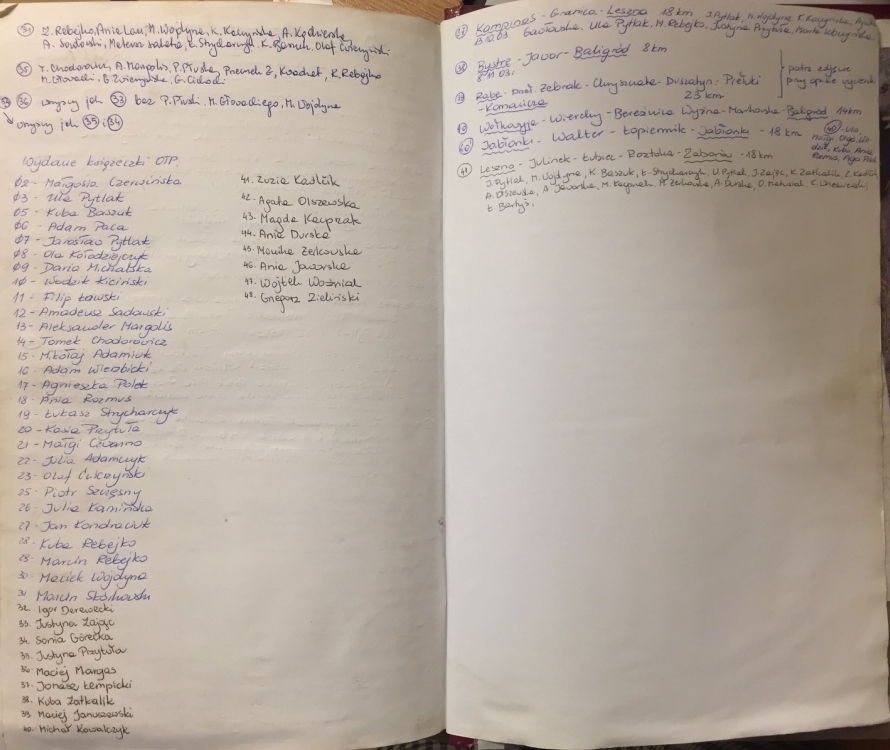 Z. Rebejko, Ania Lau, M. Wojdyna, K. Kaczyńska, A. Kędzierska
A. Sadowski, Ł. Strycharczyk, K. Baszuk, Olaf Ćwiczyński
35 T. Chodorowicz, A. Margolis, P. Pruski, Przemek Z, K. Rebejko
M. Głowacki, G. Cichocki
36 bez P. Pruski, M. Głowackiego, M. Wojdyna
35 i 34
Wydane książeczki OTP.
02 - Małgosia Czerwińska
03 - Ula Pytlak
05 - Kuba Baszuk
06 - Adam Paca
07 - Jarosław Pytlak
08 - Ola Kołodziejczyk
09 - Daria Michalska
10 - Wodzik Kiciński
11 - Filip Ławski
12 - Amadeusz Sadowski
13 - Aleksander Margolis
14 - Tomek Chodorowicz
15 - Mikołaj Adamiuk
16 - Adam Wierzbicki
17 - Agnieszka Polek
18 - Ania Rozmus
19 - Łukasz Strycharczyk
20 - Kasia Przytuła
21 - Małgi Czwarno
22 - Julia Adamczyk
23 - Olaf Ćwiczyński
25 - Piotr Szczęsny
26 - Julia Kamińska
27 - Jan Kondraciuk
28 - Kuba Rebejko
29 - Marcin Rebejko
30 - Maciek Wojdyna
31 Marcin Skórkowski
32. Igor Derewecki
33. Justyna Zając
34. Sonia Górecka
35. Justyna Przytuła
36. Maciej Margas
37. Jonasz Łempicki
38. Kuba Zatkalik
39. Maciej Januszewski
40. Michał Kowalczyk
41. Zuzia Kadłčik
42. Agata Olszewska
43. Magda Kacprzak
44. Ania Durska
45. Monika Żelkowska
46. Ania Jaworska
47. Wojtek Woźniak
48. Grzegorz Zieliński
37 Kampinos - Granica - Leszna 18 km J. Pytlak, M. Wojdyna, K. Kaczyńska
Ula Pytlak, M. Rebejko, Justyna
38 Bystre - Jawor - Baligród 8 km
Rabe - Żebrak - Chryszczata - Duszatyn - Prełuki
- Komańcza 23 km
patrz zdjęcie
przy opisie wycieczki
Wołkowyja - Wierchy - Bereźnica Wyżna - Markowska - Baligród 14km
40 Jabłonki - Walter - Łopiennik - Jabłonki - 18 km
41 Leszna - Julinek - Łubiec - Roztoka - Zaborów - 18km
J. Pytlak, M. Wojdyna, K. Baszuk, Ł. Strycharczyk, U. Pytlak, J. Zając, K. Zatkalik, Z. Kadłčik
A. Olszewska, A. Jaworska, M. Kacprzak, M. Żelkowska, A. Durska